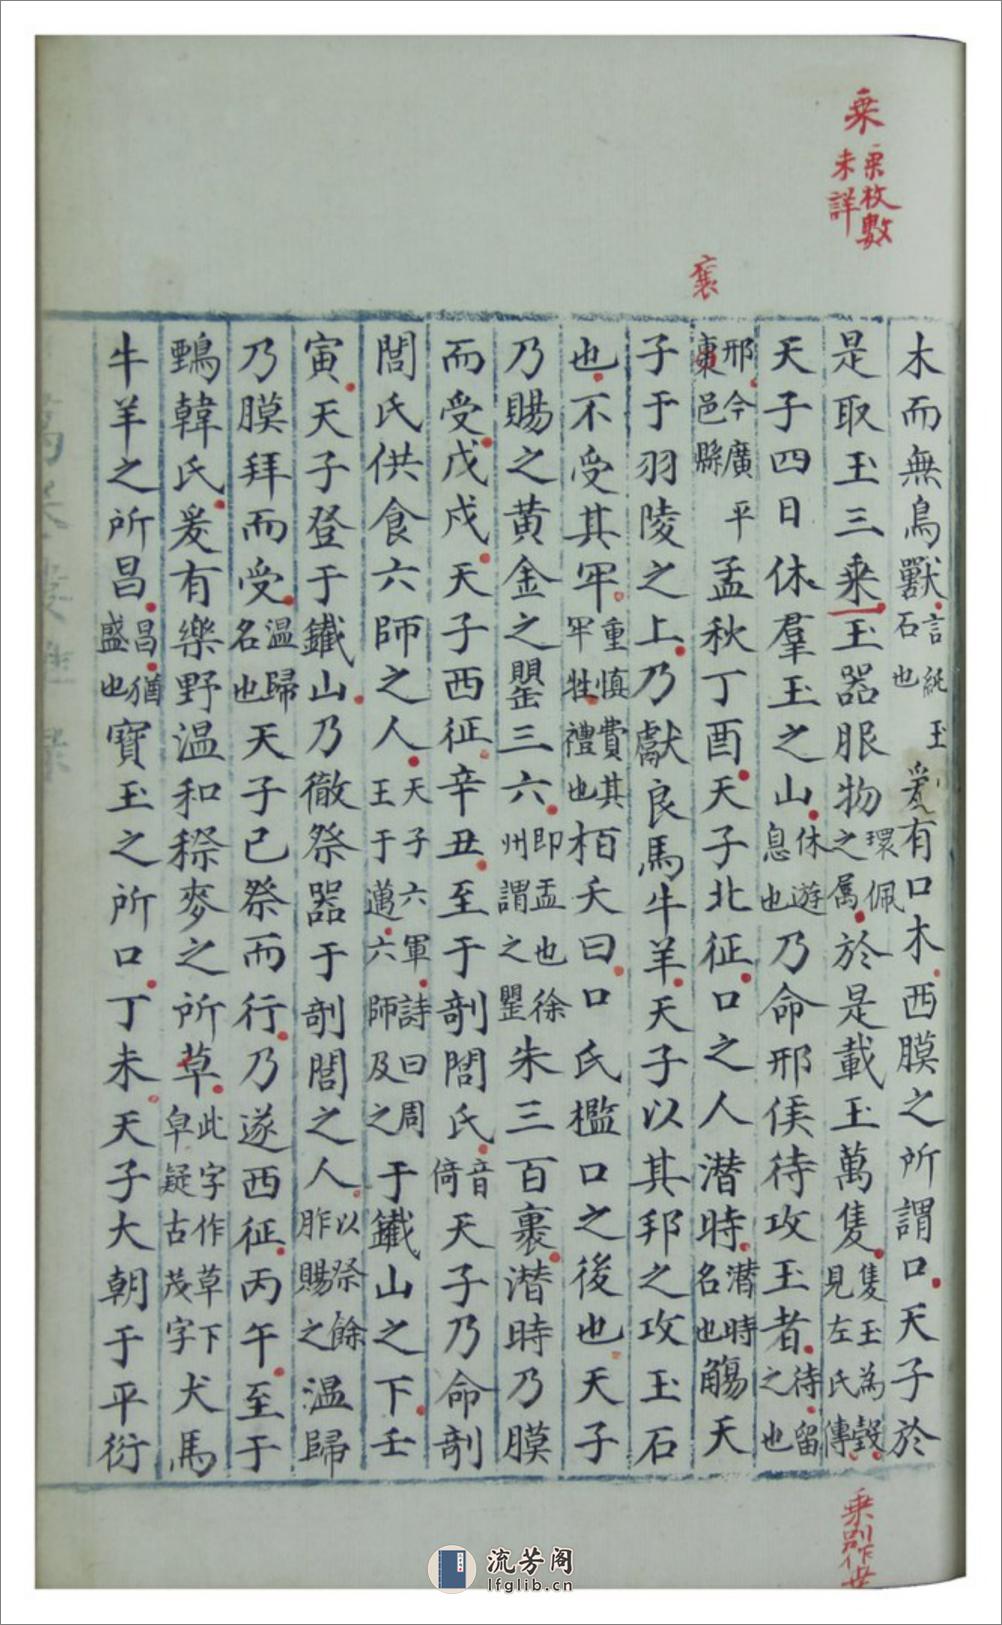 木而無鳥獸言純玉石也爰有口木西膜之所謂口天子於
是取玉三乘玉器服物環佩之属於是載玉萬隻隻玉為瑴見左氏傳
天子四日休羣玉之山休遊息也乃命邢侯待攻玉者待留之也
邢今廣平襄邑縣孟秋丁酉天子北征口之人潜時潜時名也觴天
子于羽陵之上乃獻良馬牛羊天子以其邦之攻玉石
也不受其牢重慎費其牢牲禮也栢夭曰口氏檻口之後也天子
乃賜之黄金之罌三六即盂也徐州謂之罌朱三百裹潜時乃膜
而受戊戌天子西征辛丑至于剞閭氏音倚天子乃命剞
閭氏供食六師之人天子六軍詩曰周王于邁六師及之于鐵山之下壬
寅天子登于鐵山乃徹祭器于剞閭之人以祭餘胙賜之温歸
乃膜拜而受温歸名也天子已祭而行乃遂西征丙午至于
鸎韓氏爰有樂野温和穄麥之所草此字作草下皁疑古茂字犬馬
牛羊之所昌昌猶盛也寶玉之所口丁未天子大朝于平衍
乘
未詳
襄
流芳阁
lfglib.cn